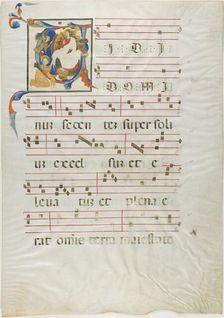 V I D I
D O M I
nuz seden tez super soli
uz excel suz et e
leua tuz et plena e
rat omis terra maiestate